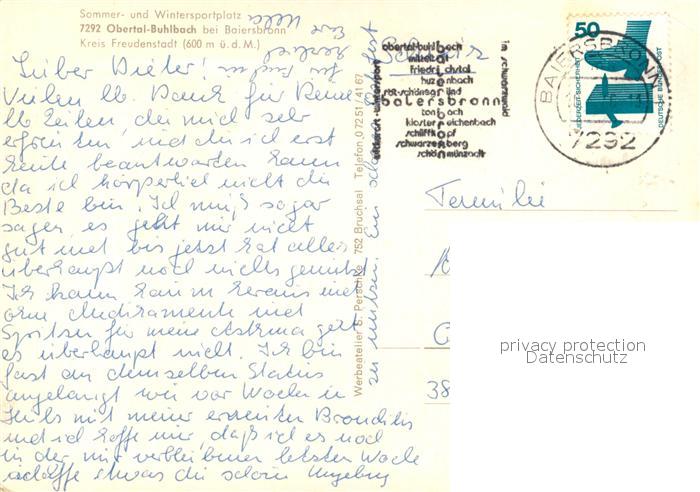 Sommer- und Wintersportplatz
7292 Obertal-Buhlbach bei Baiersbronn
Kreis Freudenstadt (600 m ü. d. M.)
Lieber Dieter!
Vielen lb Dank für Deine
lb Zeilen die mich sehr
erfreuten und die ich erst
heute beantworten kann
da ich körperlich nicht die
Beste bin. Ich muß sogar
sagen es geht mir nicht
gut und bis jetzt hat alles
überhaupt noch nichts genützt
Ich kann kaum heraus und
ohne Medikamente und
Spritzen für mein Asthma geht
es überhaupt nicht. Ich bin
fast an demselben Status
angelangt wie vor Wochen in
mit meiner erneuten Bronchitis
und ich hoffe nur, daß ich es noch
in der mir verbliebenen letzten Woche
schaffe etwas die schöne Umgebung
zu nützen. Ein
Werbeatelier S. Perschke 752 Bruchsal Telefon 0 72 51 / 41 67
obertal-buhlbach
mitteltal
friedrichstal
huzenbach
röt-schönegründ
baiersbronn
tonbach
klosterreichenbach
schliffkopf
schwarzenberg
schönmünzach
im schwarzwald
50
JEDERZEIT SICHERHEIT
DEUTSCHE BUNDESPOST
BAIERSBRONN
7292
Familie
38
privacy protection
Datenschutz